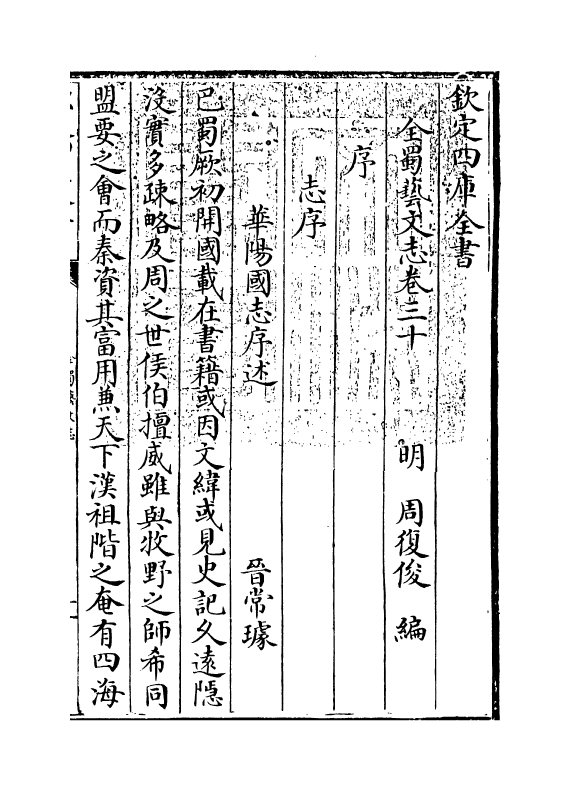 欽定四庫全書
全蜀藝文志卷三十
明　周復俊　編
序
志序
華陽國志序述
晉常璩
巴蜀厥初開國載在書籍或因文緯或見史記久遠隱
沒實多疎略及周之世侯伯擅威雖與牧野之師希同
盟要之會而秦資其富用兼天下漢祖階之奄有四海